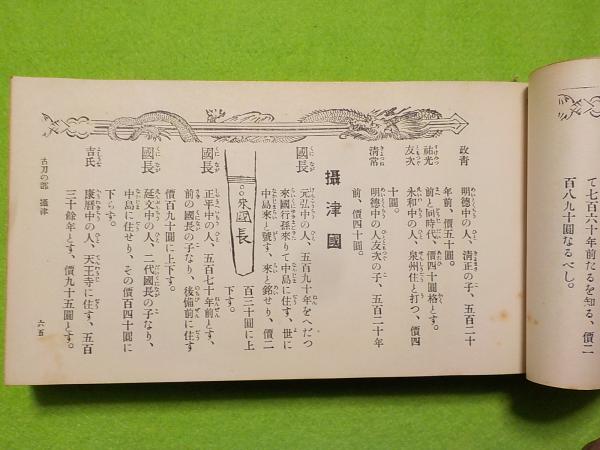 て七百六十年前たるを知る、價二
百八九十圓なるべし。
政青
明德中の人、清正の子、五百二十
年前、價五十圓。
祐光
前と同時代、價四十圓格とす。
友次
永和中の人、泉州住と打つ、價四
十圓。
清常
明德中の人友次の子、五百二十年
前、價四十圓。
攝津國
國長
元弘中の人、五百九十年をへだつ
來國行孫來りて中島に住す、世に
中島來と號す、來と銘せり、價二
百三十圓に上
下す。
來國長
國長
正平中の人、五百七十年前とす、
前の國長の子なり、後備前に住す
價百九十圓に上下す。
國長
延文中の人、二代國長の子なり、
中島に住せり、その價百四十圓に
下らず。
吉氏
康曆中の人、天王寺に住す、五百
三十餘年とす、價九十五圓とす。
古刀の部 攝津
六五